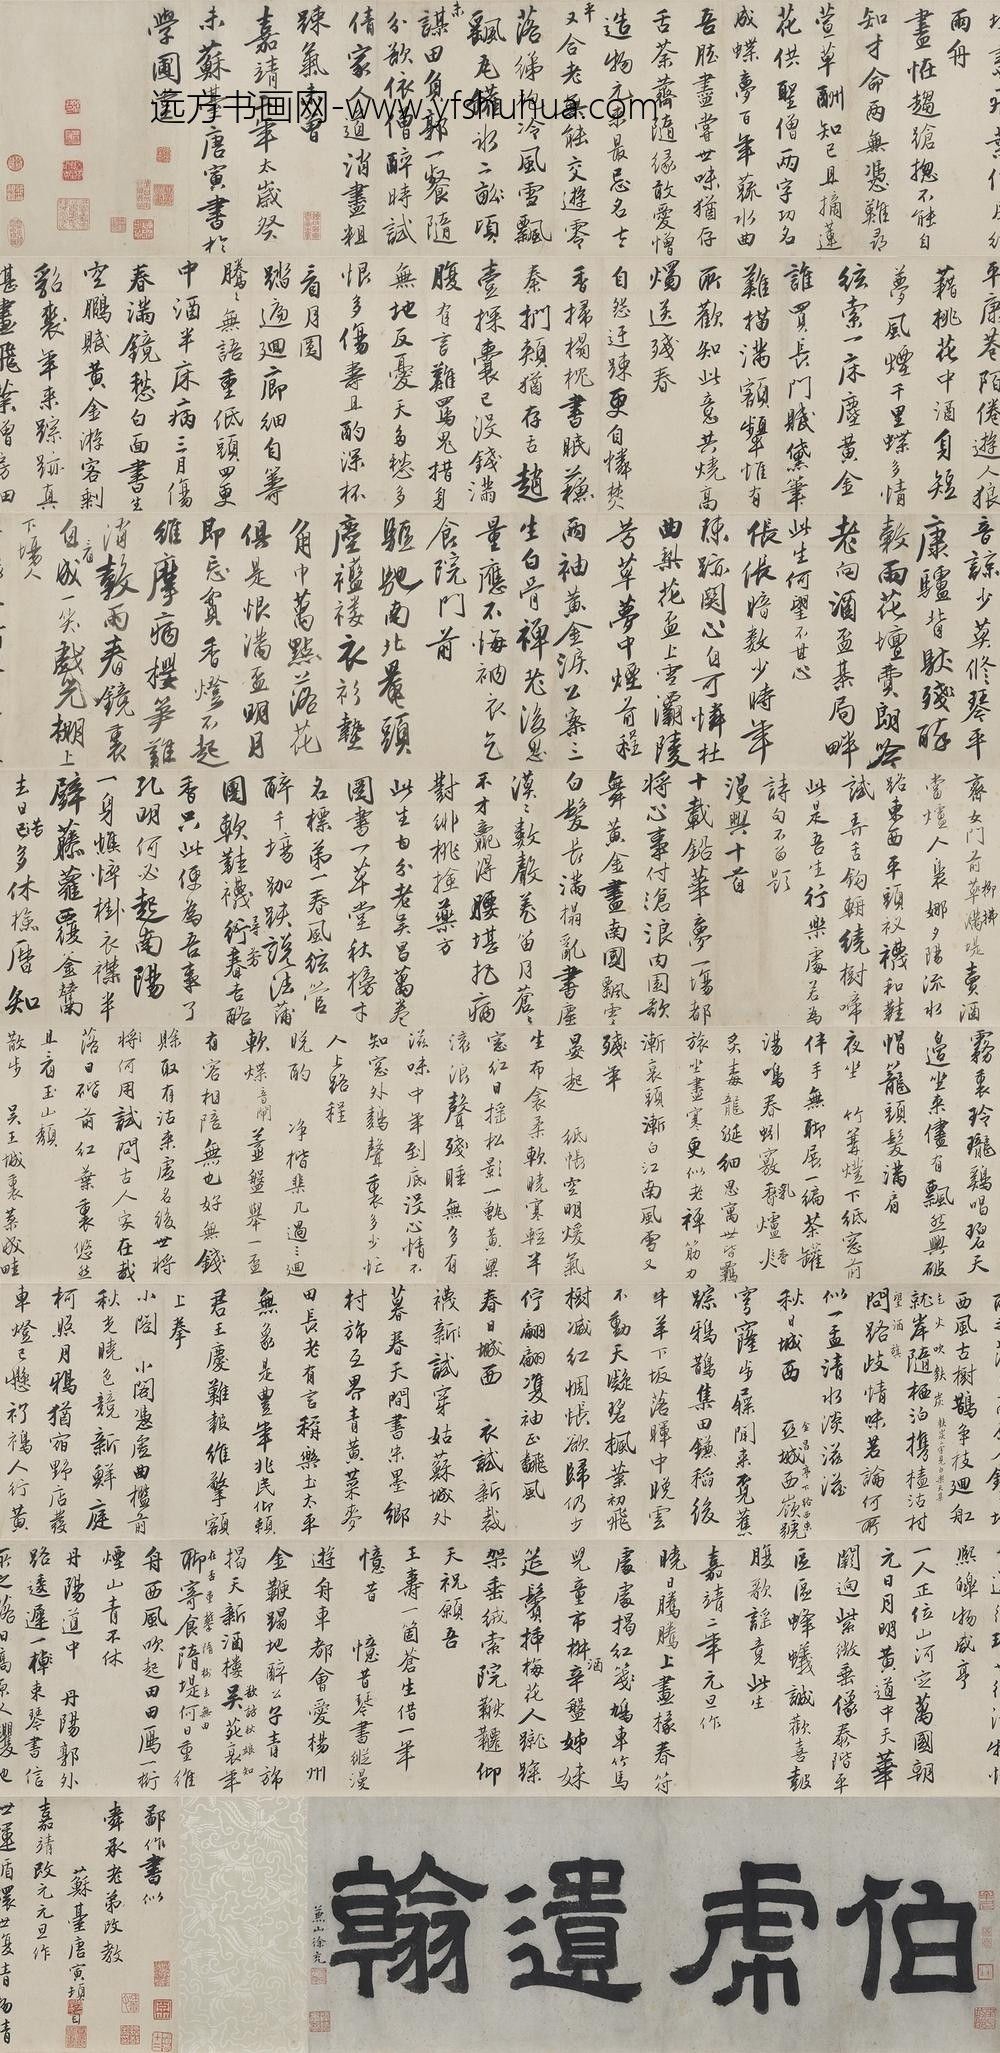 伯虎遺翰
蕉山徐充
鄙作書似
舜承老弟改教
蘇臺唐寅頓首
嘉靖改元元旦作
世運循環世復清
熙皞物咸亨
一人正位山河定萬國朝
元日月明黄道中天華
闕迥紫微垂像泰階平
區區蜂蟻誠歡喜鼓
腹歌謡竟此生
嘉靖二年元旦作
曉日騰騰上畫椽春符
處處揭紅箋鳩車竹馬
兒童市椒酒辛盤姊妹
筵鬢插梅花人蹴踘
架垂絨索院鞦韆仰
天祝願吾
王壽一箇蒼生借一年
憶昔 憶昔琴書縱漫
遊舟車都會愛楊州
金鞭躅地醉公子青斾
揭天新酒樓
聊寄食隋堤何日重維
舟西風吹起田田雁一行
煙山青不休
丹陽道中 丹陽郭外
路逶遲一棹東琴書信
所之落日高原人
西風古樹鵲爭枝迴舡
就岸隨栖泊携榼沽村
問路岐情味若論何所
似一盂清水淡滋滋
秋日城西 亞城西
步屧閒來覓舊
踪鴉鵲集田鐮稻後
牛羊下坂落暉中晚雲
不動天凝碧楓葉初飛
樹減紅惆悵欲歸仍少
佇翩翩雙袖正飄風
春日城西 衣試新裁
襪新試穿姑蘇城外
暮春天間書朱墨鄉
村斾互界青黄菜麥
田長老有言稱樂土太平
無象是豐年兆民仰賴
君王慶難報維擎額
上拳
小閣 小閣憑虚曲檻前
秋光曉色競新鮮庭
柯照月鴉猶宿野店發
車燈已懸衫褐人行黄
霧裏玲瓏鷄唱碧天
邊坐來儘有飄然興破
帽籠頭髮滿肩
夜坐 竹篝燈下紙窓前
伴手無聊展一編茶罐
湯鳴春蚓竅乳香爐火
炙毒龍涎細思寓世皆羈
旅坐盡寒更似老禪筋力
漸衰頭漸白江南風雪又
殘年
晏起 紙帳空明煖氣
生布衾柔軟曉寒輕半
窓紅日摇松影一甑黄粱
滚浪聲殘睡無多有
滋味中年到底没心情不
知窓外鷄聲裏多少忙
人上路程
晚酌 净楷棐几過三迴
軟煤音閙蓋盤舉一盃
有客相陪無也好無錢
賒取有沽來虚名後世將
將何用試問古人家在哉
落日砌前紅葉裏悠然
且看玉山頽
散步 吴王城裏菜成畦
齊女門前草滿堤賣酒
當爐人裊娜夕陽流水
路東西平頭衩襪和鞋
試弄舌鈎輈繞樹啼
此是吾生行樂處若爲
詩句不留題
漫興十首
十載鉛華夢一場都
將心事付滄浪内園歌
舞黄金盡南國飄零
白髮長滿榻亂書塵
漠漠數聲羗笛月蒼蒼
不才贏得腰堪把病
對緋桃撿藥方
此生自分老吴昌萬卷
圖書一草堂秋榜才
名標第一春風絃管
醉千塲跏趺說法蒲
團軟鞋襪尋芳杏酪
香只此便爲吾事了
孔明何必起南陽
一身憔悴掛衣襟半
壁藤蘿覆釜鬵
去日苦多休檢曆知
音諒少莫修琴平
康驢背馱殘醉
穀雨花壇費朗吟
老向酒盃棊局畔
此生何望不甘心
倀倀暗數少時年
陳跡關心自可憐杜
曲梨花盃上雪灞陵
芳草夢中煙前程
兩袖黄金淚公案三
生白骨禪老後思
量應不悔衲衣乞
食院門前
驅馳南北鬢頭
塵襤褸衣衫墊
角巾萬點落花
俱是恨滿盃明月
即忘貧香燈不起
維摩病櫻笋難
消穀雨春鏡裏
自成一笑戲先棚上
下塲人
平康巷陌倦遊人狼
藉桃花中酒身短
夢風煙千里蝶多情
絃索一床塵黄金
誰買長門賦黛筆
難描滿額顰惟有
所歡知此意共燒高
燭送殘春
自怨迂疎更自憐焚
香掃榻枕書眠蘇
秦捫頰猶存舌趙
壹探囊已没錢滿
腹有言難罵鬼措身
無地反憂天多愁多
恨多傷壽且酌深杯
看月圓
踏遍迴廊細自籌
騰騰無語重低頭四更
中酒半床病三月傷
春滿鏡愁白面書生
空鵬賦黄金游客剩
貂裘年來踪跡真
堪畫飛葉曾方田
兩舟
晝恠趨蹌揔不能自
知才命兩無憑難尋
萱草酬知己且摘蓮
花供聖僧兩字功名
成蝶夢百年蔬水曲
吾肱盡嘗世味猶存
舌茶薺隨緣敢愛憎
造物元來最忌名
又合老無能交遊零
落綈袍冷風雪飄
飄瓦罐冰二頃
謀田負郭一餐隨
分欲依僧醉時試
倩家人道消盡粗
疎氣未曾
嘉靖年太歲癸
未蘇臺唐寅書於
學圃堂
远方书画网-www.yfshuhua.com